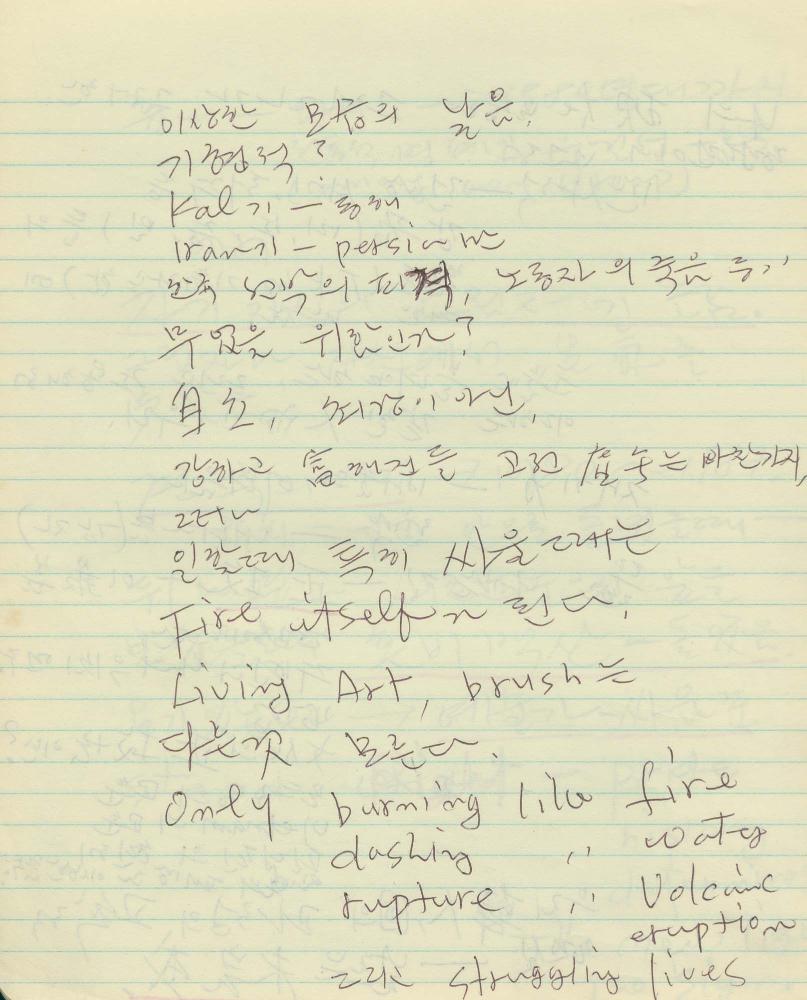 이상한 모양의 낱음.
기형적?
Kal기 — 동해
Iran기 — persian만
의 피격, 노동자의 죽음 등이
무엇을 위함인가?
이 아닌,
강하고 는 마찬가지,
그러나
일할때 특히 싸울때는
Fire itself가 된다.
Living Art, brush는
다른것 모른다.
Only burning like fire
dashing 〃 water
rupture 〃 Volcanic
eruption
그리고 struggling lives